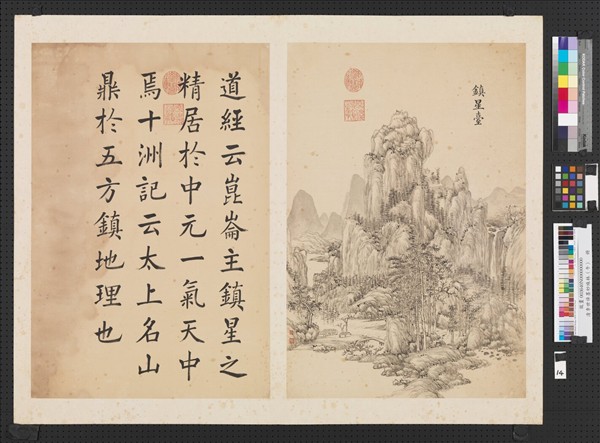 鎮星臺
道經云崑崙主鎮星之
精居於中元一氣天中
焉十洲記云太上名山
鼎於五方鎮地理也
14